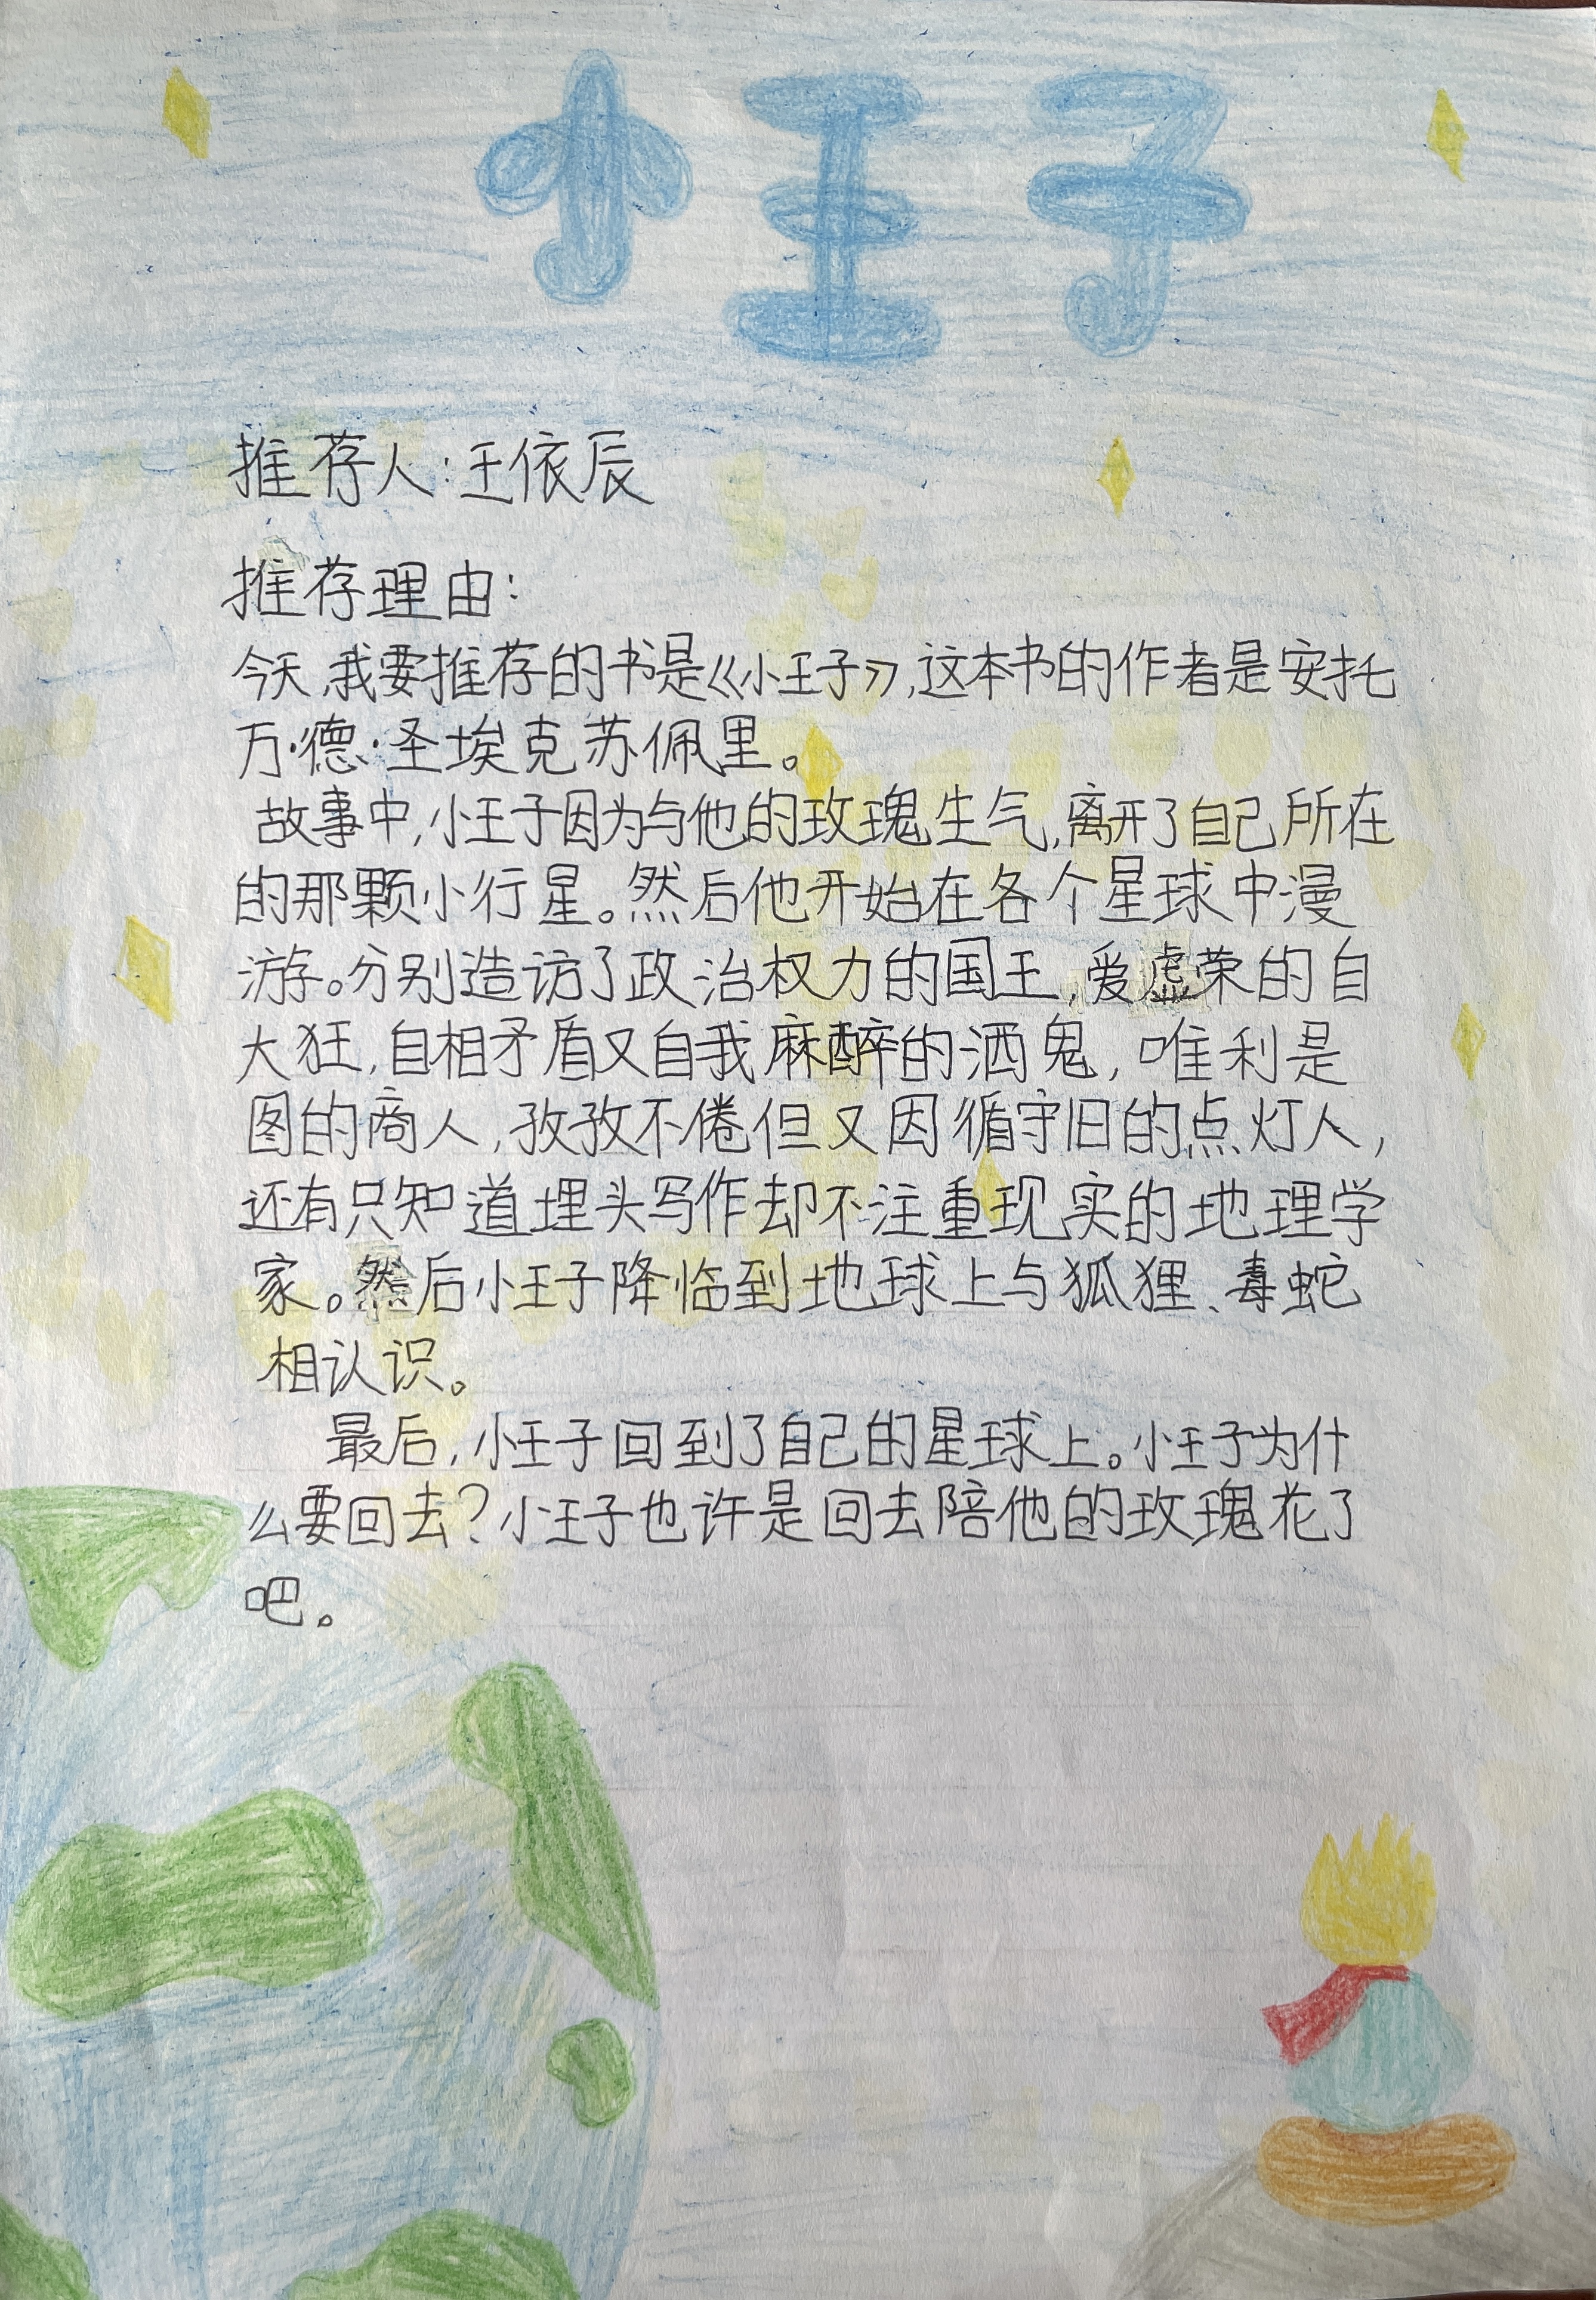 小王子
推荐人:王依辰
推荐理由:
今天,我要推荐的书是《小王子》,这本书的作者是安托
万·德·圣埃克苏佩里。
故事中,小王子因为与他的玫瑰生气,离开了自己所在
的那颗小行星。然后他开始在各个星球中漫
游。分别造访了政治权力的国王,爱虚荣的自
大狂,自相矛盾又自我麻醉的酒鬼,唯利是
图的商人,孜孜不倦但又因循守旧的点灯人,
还有只知道埋头写作却不注重现实的地理学
家。然后小王子降临到地球上与狐狸、毒蛇
相认识。
最后,小王子回到了自己的星球上。小王子为什
么要回去?小王子也许是回去陪他的玫瑰花了
吧。